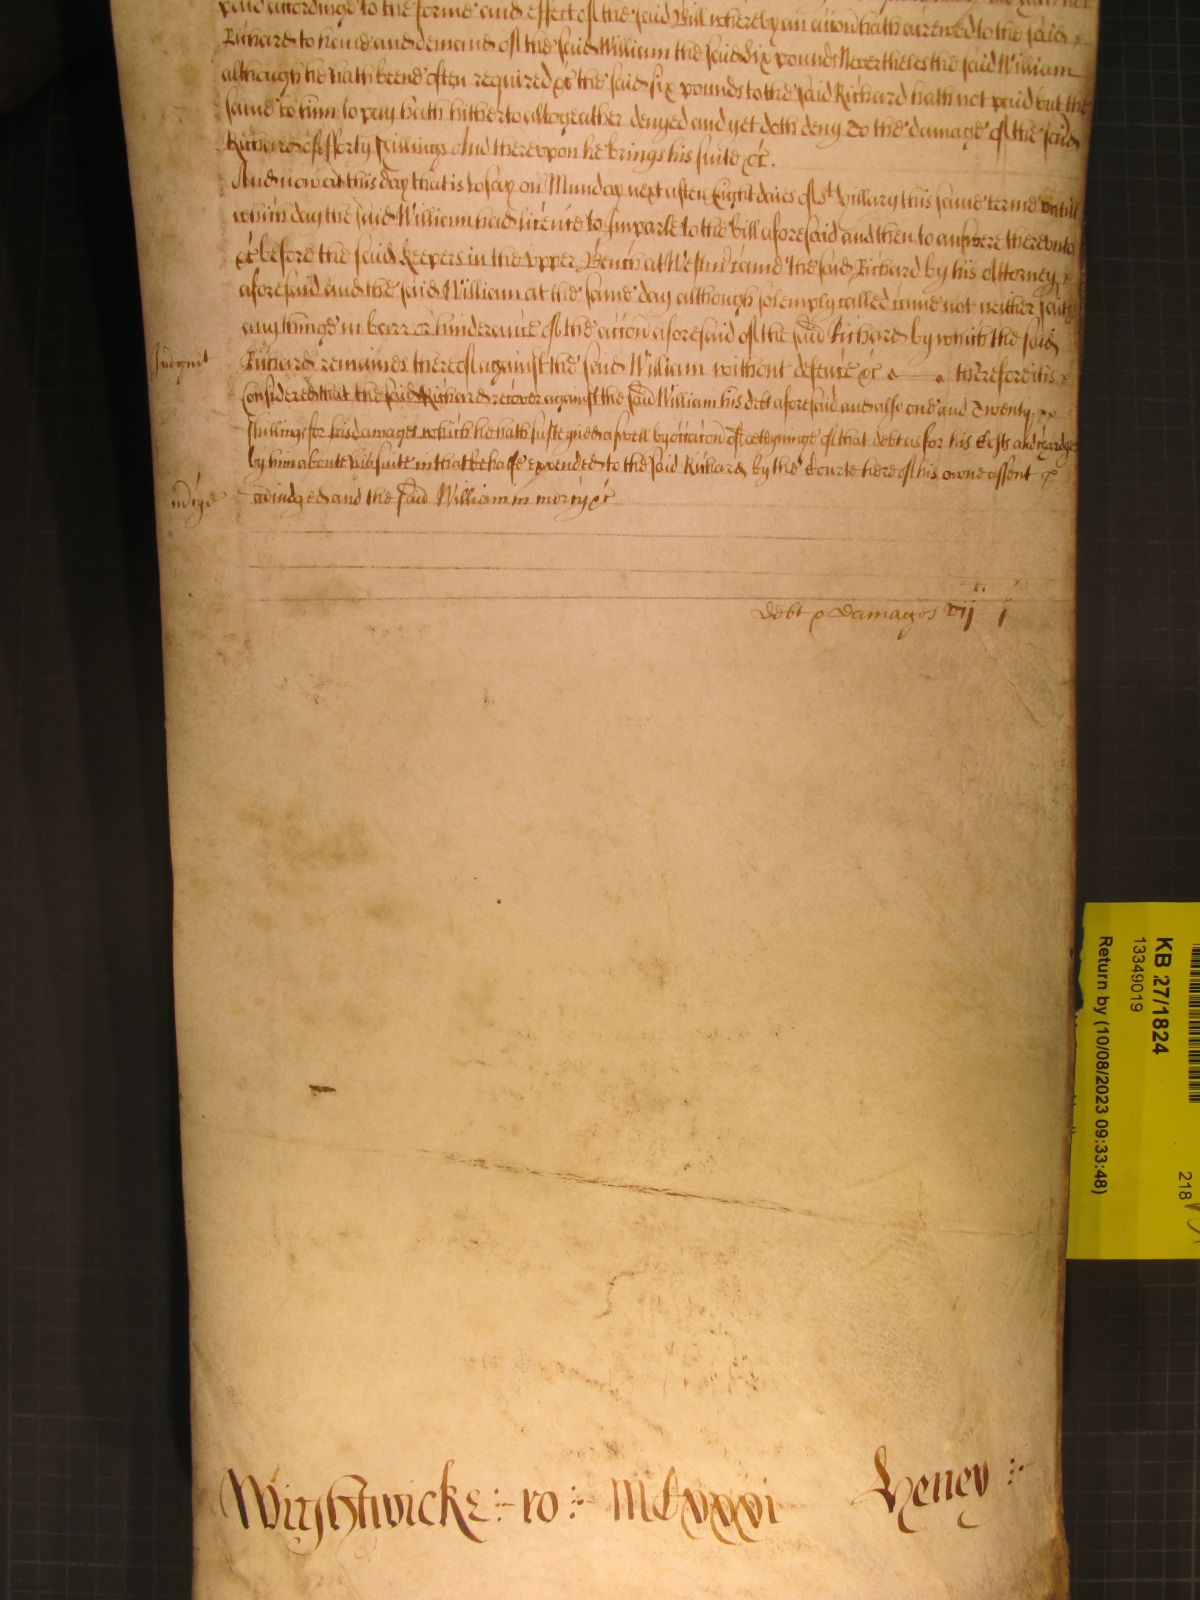 paid accordinge to the forme and effect of the said Bill whereby an accon hath accrewed to the said
Richard to have and demand of the said William the said six pounds Neverthelesse the said William
although he hath beene often required &c the said six pounds to the said Richard hath not paid but the
same to him to pay hath hitherto altogeather denyed and yet doth deny To the damage of the said
Richard of fforty shillings And thereupon he brings his suite &c.
And now at this day that is to say on Munday next after Eight daies of St Hillary this same terme untill
which day the said William had licence to Imparle to the bill aforesaid and then to answere thereunto
&c before the said keepers in the upper Bench at Westmr came the said Richard by his Attorney
aforesaid and the said William at the same day although solemply called came not neither saith
any thinge in barr or hinderance of the accon aforesaid of the said Richard by which the said
Judgmt
Richard remaines thereof against the said William without defence &c therefore it is
considered that the said Richard recover against the said William his debt aforesaid and alsoe one and Twenty
shillings for his damages which he hath susteyned aswell by occacon of deteyninge of that debt as for his Costs and Chardges
by him aboute his suite in that behalfe expended to the said Richard by the Courte here of his owne assent
adiudged and the said William in mercy &c
debt & damages vij li j s
Wightwicke ro MCxxxvi
KB 27/1824
13349019
Return by (10/08/2023 09:33:48)
218